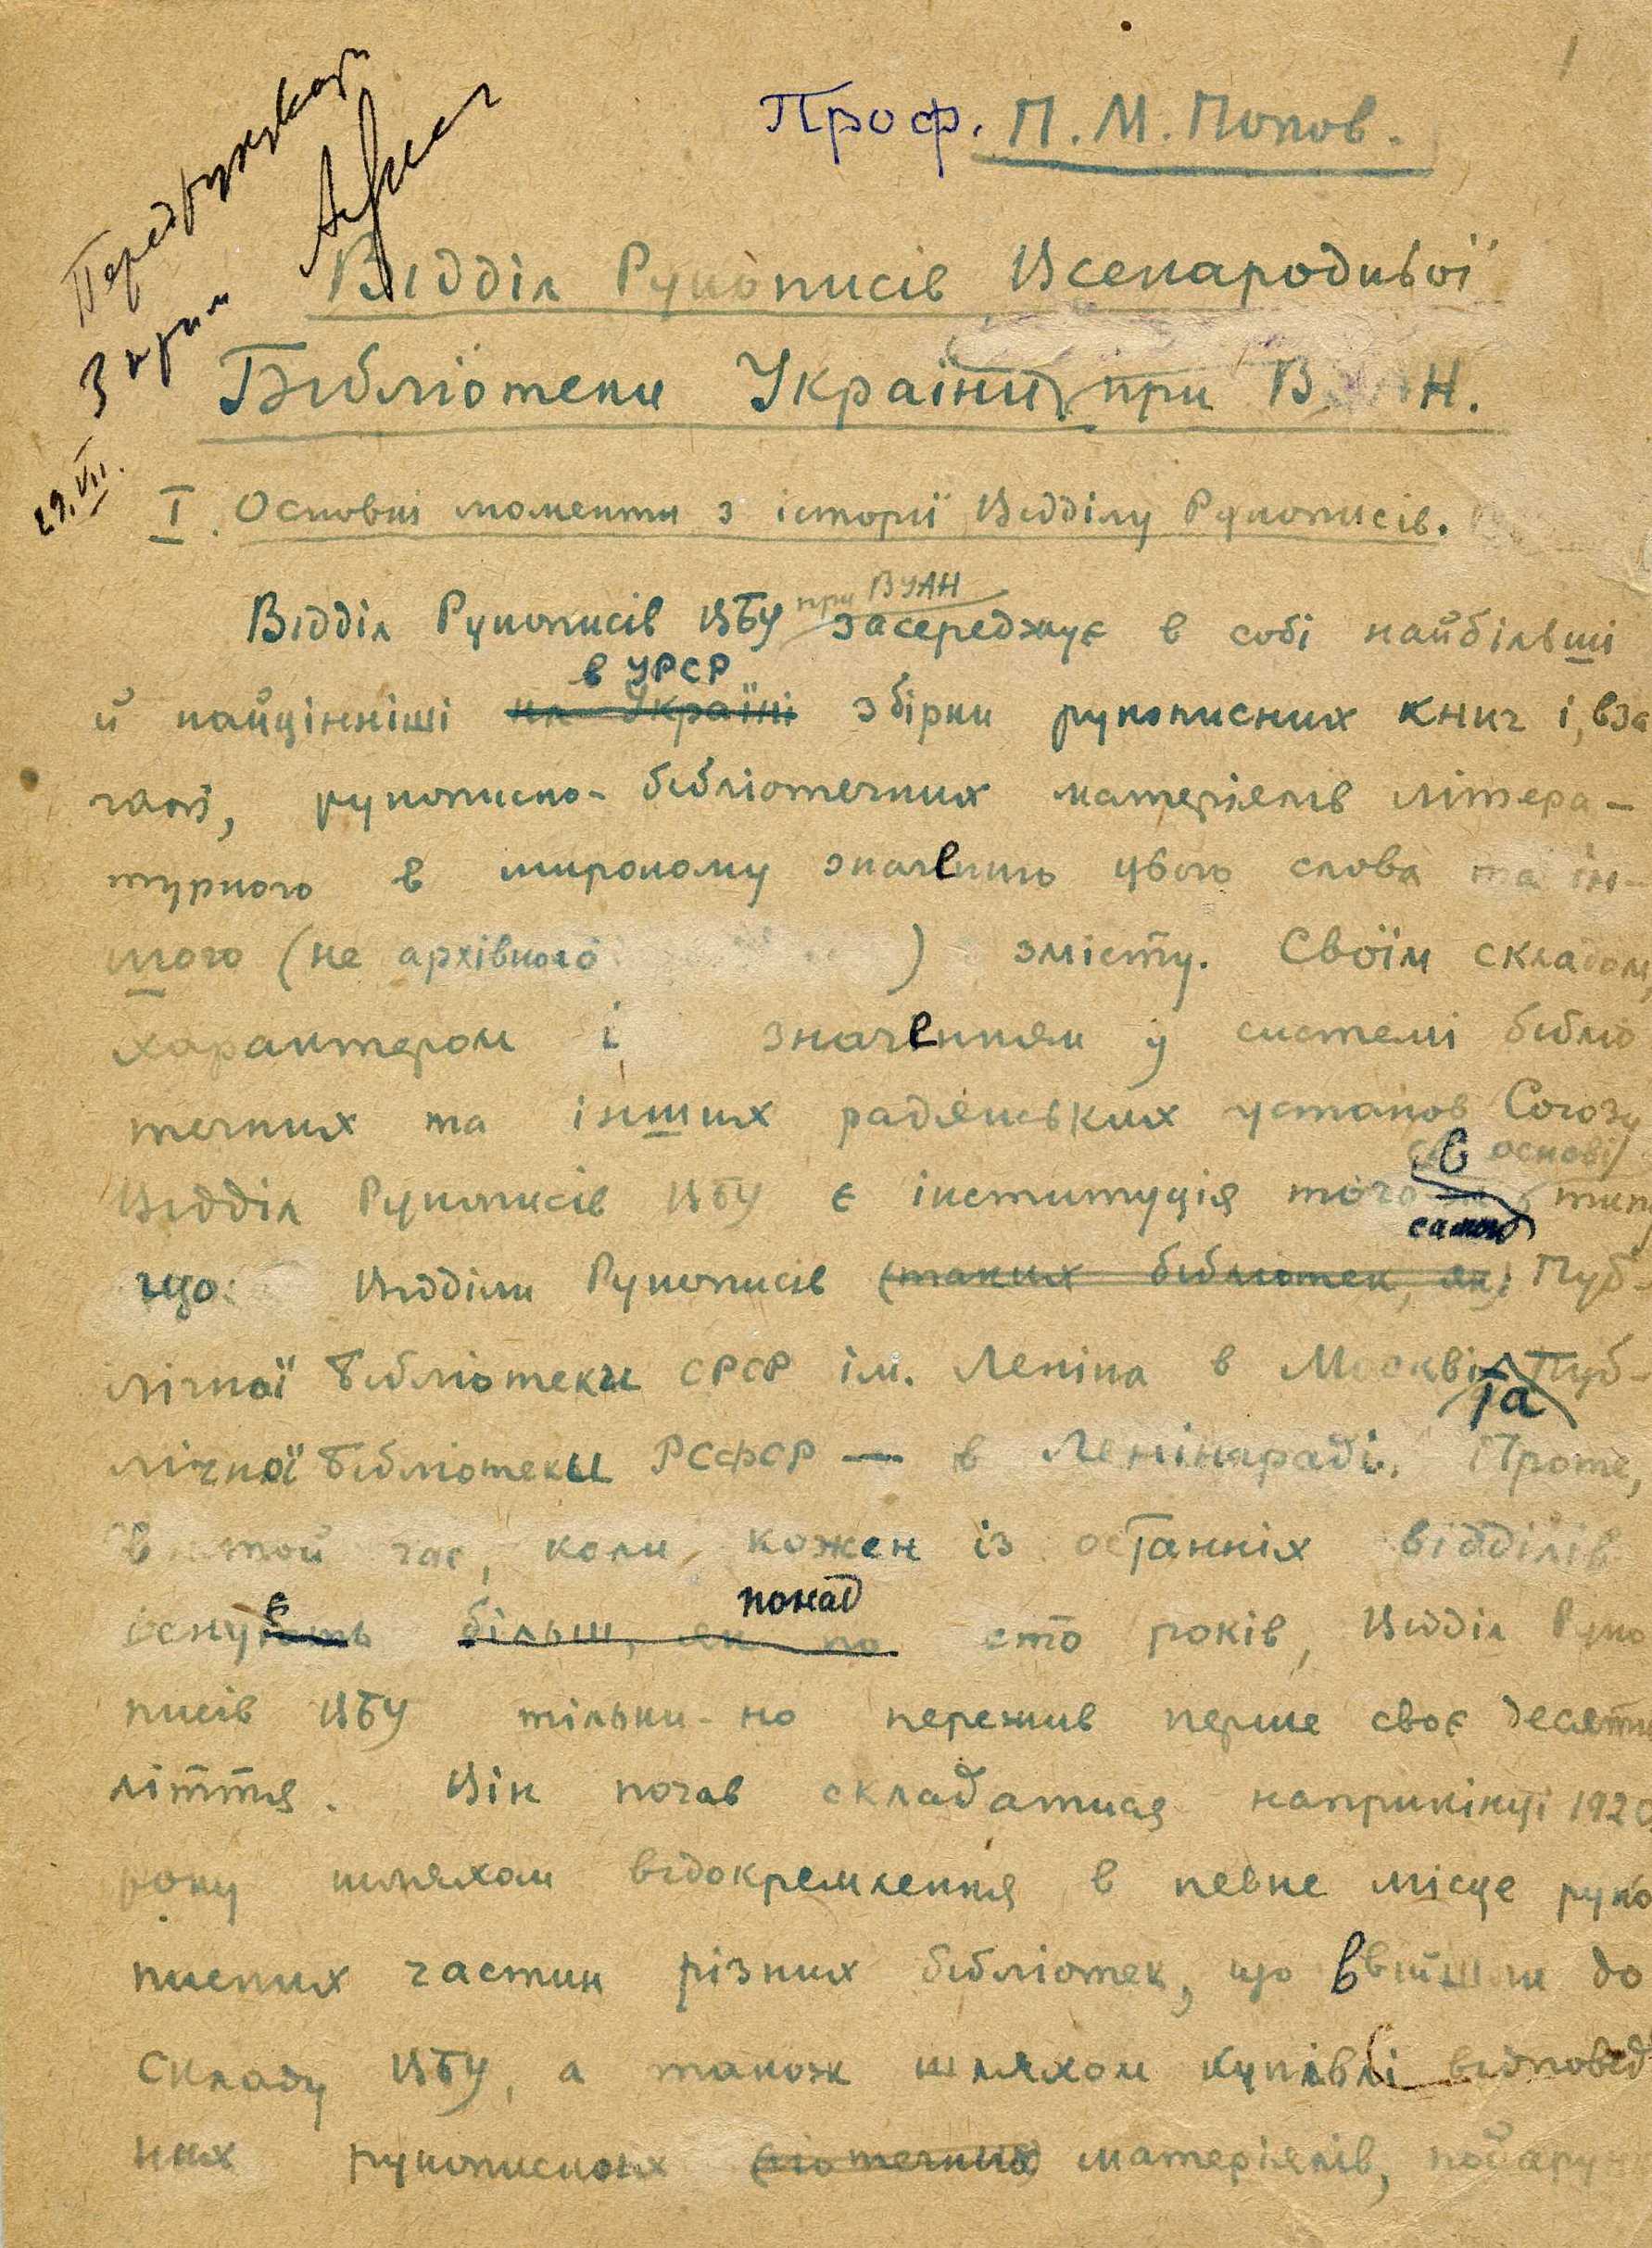 1
Проф. П. М. Попов.
Передрукувати
3 прим
29.VII.
Відділ Рукописів Всенародньої
Бібліотеки України при ВУАН.
I. Основні моменти з історії Відділу Рукописів.
Відділ Рукописів ВБУ при ВУАН засереджує в собі найбільші
в УРСР
й найцінніші на Україні збірки рукописних книг і, вза
галі, рукописно-бібліотечних матеріялів літера-
турного в широкому значенню цього слова та ін-
шого (не архівного ) змісту. Своїм складом,
характером і значенням у системі бібліо
течних та інших радянських установ Союзу
в основі
Відділ Рукописів ВБУ є інституція того типу
самого
що Відділи Рукописів (таких бібліотек, як) Пуб-
лічної Бібліотеки СРСР ім. Леніна в Москві та Пуб-
лічної Бібліотеки РСФСР — в Ленінграді. Проте,
в той час, коли кожен із останніх відділів
є понад
існують більш, як по сто років, Відділ Руко
писів ВБУ тільки-но пережив перше своє десяти
ліття. Він почав складатися наприкінці 192
року шляхом відокремлення в певне місце руко
писних частин різних бібліотек, що ввійшли до
складу ВБУ, а також шляхом купівлі відповід
них рукописних матеріялів, подарун